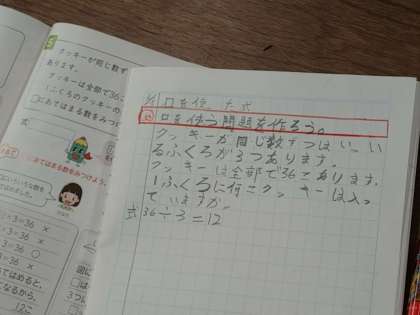 クッキーが同じ数ず
あります。
クッキーは全部で36こ
1ふくろのクッキーの
□にあてはまる数をみつ
式
□にあてはまる数をみつけよう。
×3=36 ×
×3=36 ×
×3=36 ○
×3=36 ×
てはめると、
になるから、
12こ
□を使った式
□を使う問題を作ろう。
クッキーが同じ数ずつはいってい
るふくろが3つあります。
クッキーは全部で36こあります。
1ふくろに何こクッキーは入っ
ていますか。
式 36÷3=12